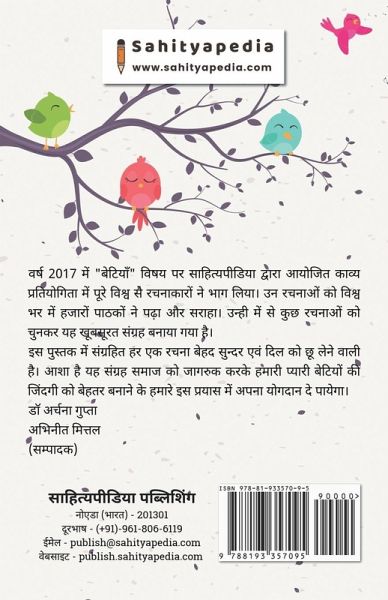 Sahityapedia
www.sahityapedia.com
वर्ष 2017 में "बेटियाँ" विषय पर साहित्यपीडिया द्वारा आयोजित काव्य
प्रतियोगिता में पूरे विश्व से रचनाकारों ने भाग लिया। उन रचनाओं को विश्व
भर में हजारों पाठकों ने पढ़ा और सराहा। उन्ही में से कुछ रचनाओं को
चुनकर यह खूबसूरत संग्रह बनाया गया है।
इस पुस्तक में संग्रहित हर एक रचना बेहद सुन्दर एवं दिल को छू लेने वाली
है। आशा है यह संग्रह समाज को जागरुक करके हमारी प्यारी बेटियों की
जिंदगी को बेहतर बनाने के हमारे इस प्रयास में अपना योगदान दे पायेगा।
डॉ अर्चना गुप्ता
अभिनीत मित्तल
(सम्पादक)
साहित्यपीडिया पब्लिशिंग
नोएडा (भारत) - 201301
दूरभाष - (+91)-961-806-6119
ईमेल - publish@sahityapedia.com
वेबसाइट - publish.sahityapedia.com
ISBN 978-81-933570-9-5
90000>
9 788193 357095